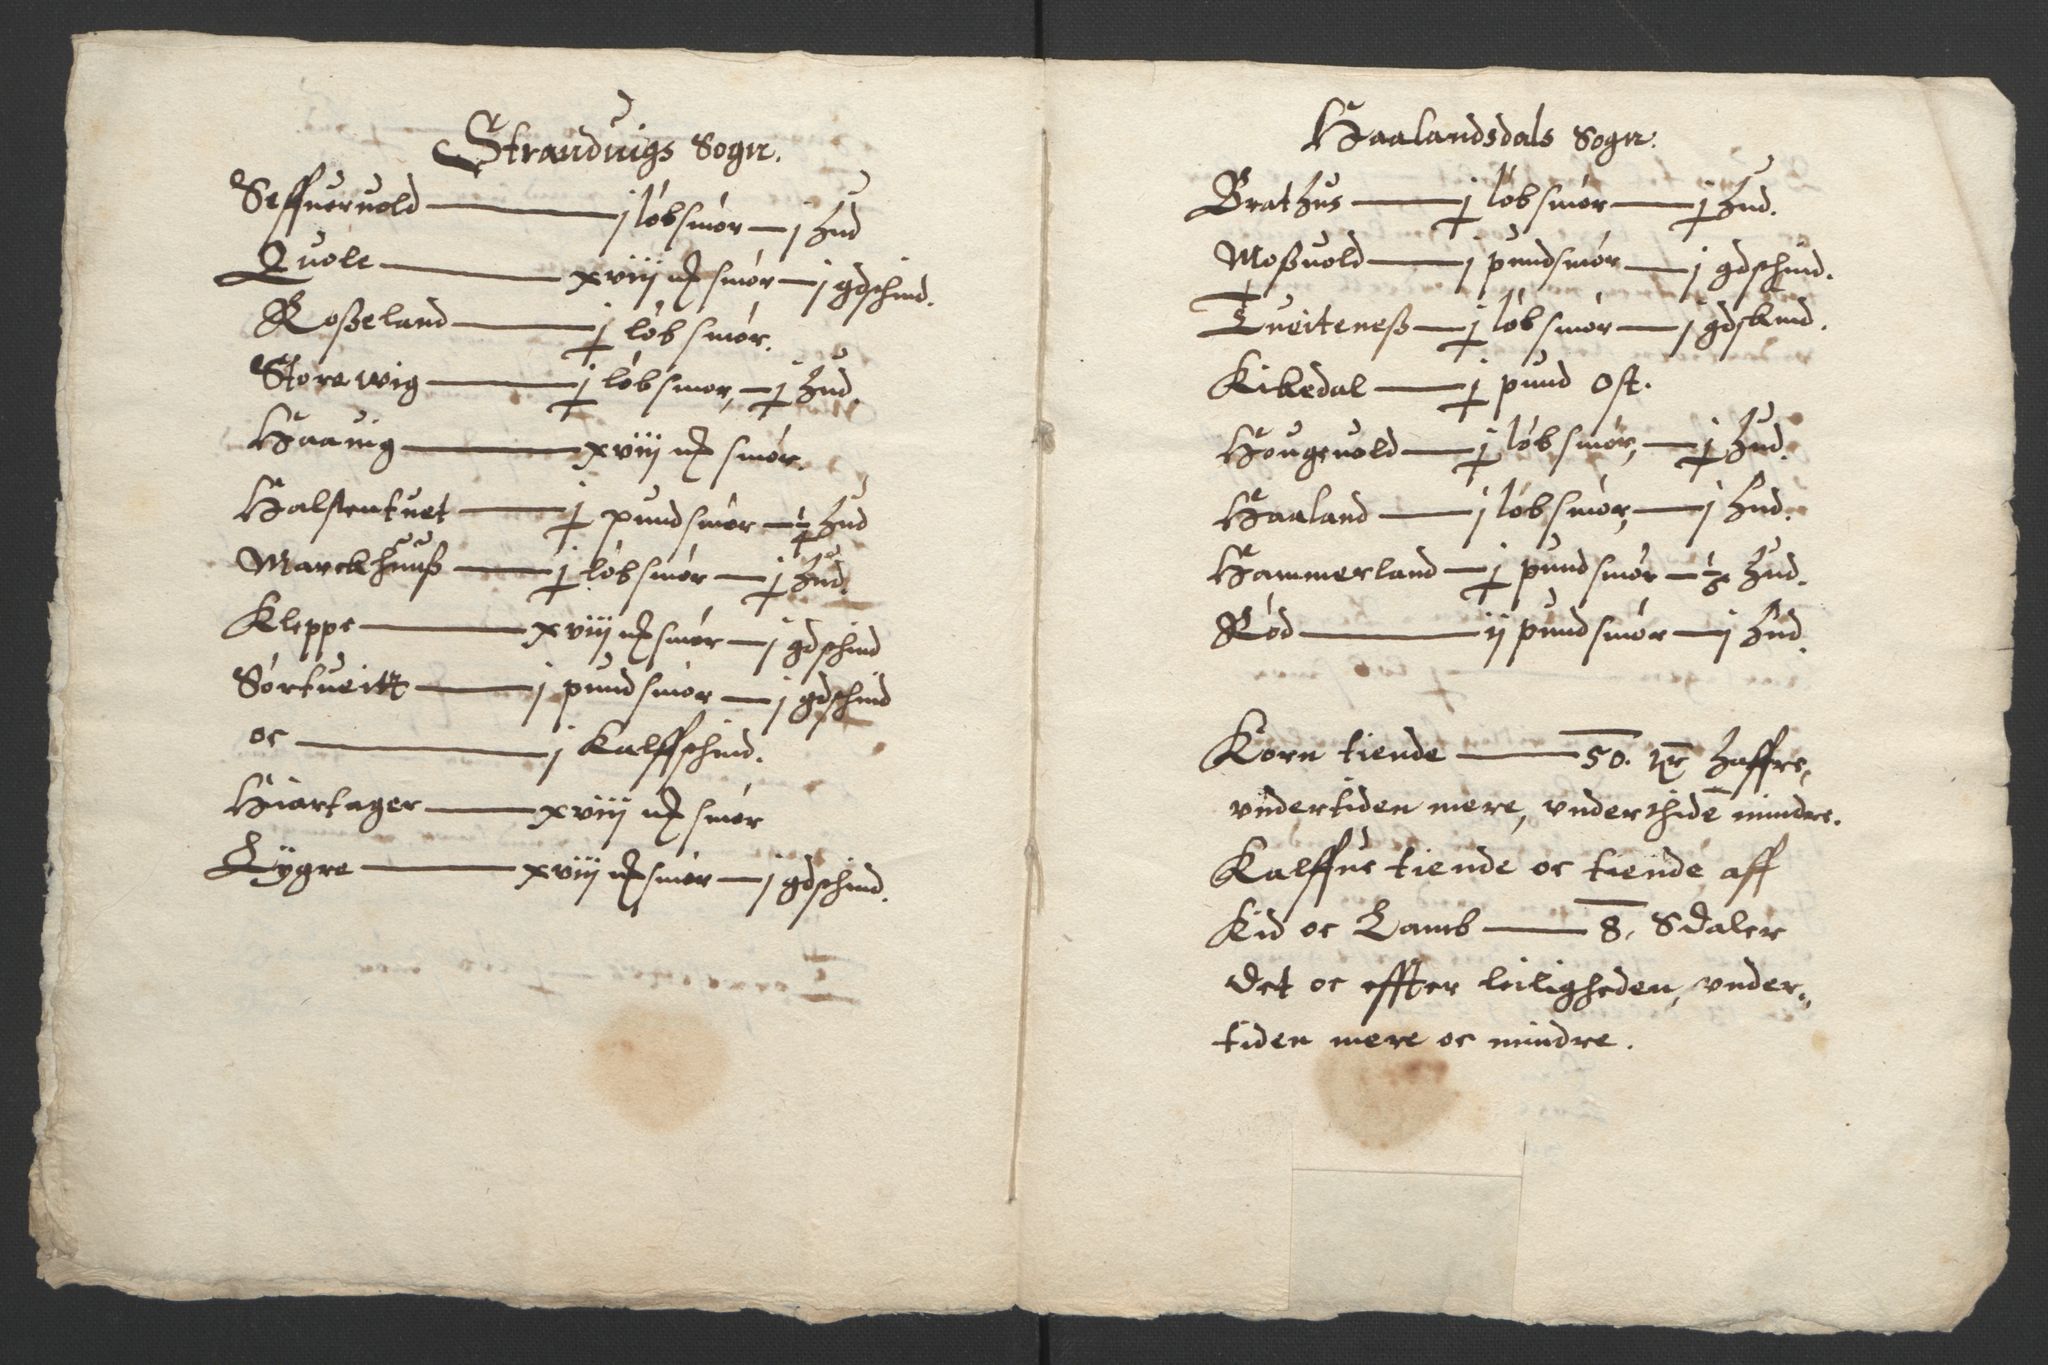 Strandvigs Sogn.
Seffueruold — j løbsmør — j hud
Quale — xviij mk smør — j gdschind.
Roßeland — ɉ løb smør.
Storewig — ɉ løbsmør, — ɉ hud.
Haavig — xviij mk smør.
Halstentuet — ɉ pundsmør — ¼ hud
Marckhuuß — ɉ løbsmør — ɉ hud.
Kleppe — xviij mk smør — j gdschind
Sørtueitt — j pundsmør — j gdschind
oc — j Kalffschind.
Hiartager — xviij mk smør
Lygre — xviij mk smør — j gdschind.
Haalandsdals Sogn.
Brathus — ɉ løbsmør — ɉ hud.
Moßuold — j pundsmør — j gdschind.
Tueiteneß — ɉ løbsmør — j gdskind.
Kikedal — ɉ pund Ost.
Hougeuold — ɉ løbsmør, — ɉ hud.
Haaland — j løbsmør, — j hud.
Hammerland — ɉ pundsmør — ⅛ hud.
Rød — ij pundsmør — j hud.
Korn tiende — 50. haffre,
vndertiden mere, vnderthidē mindre.
Kalffue tiende oc tiende aff
Kid oc Lamb — 8. Sdaler
Det oc effter leiligheden, vnder-
tiden mere oc mindre.